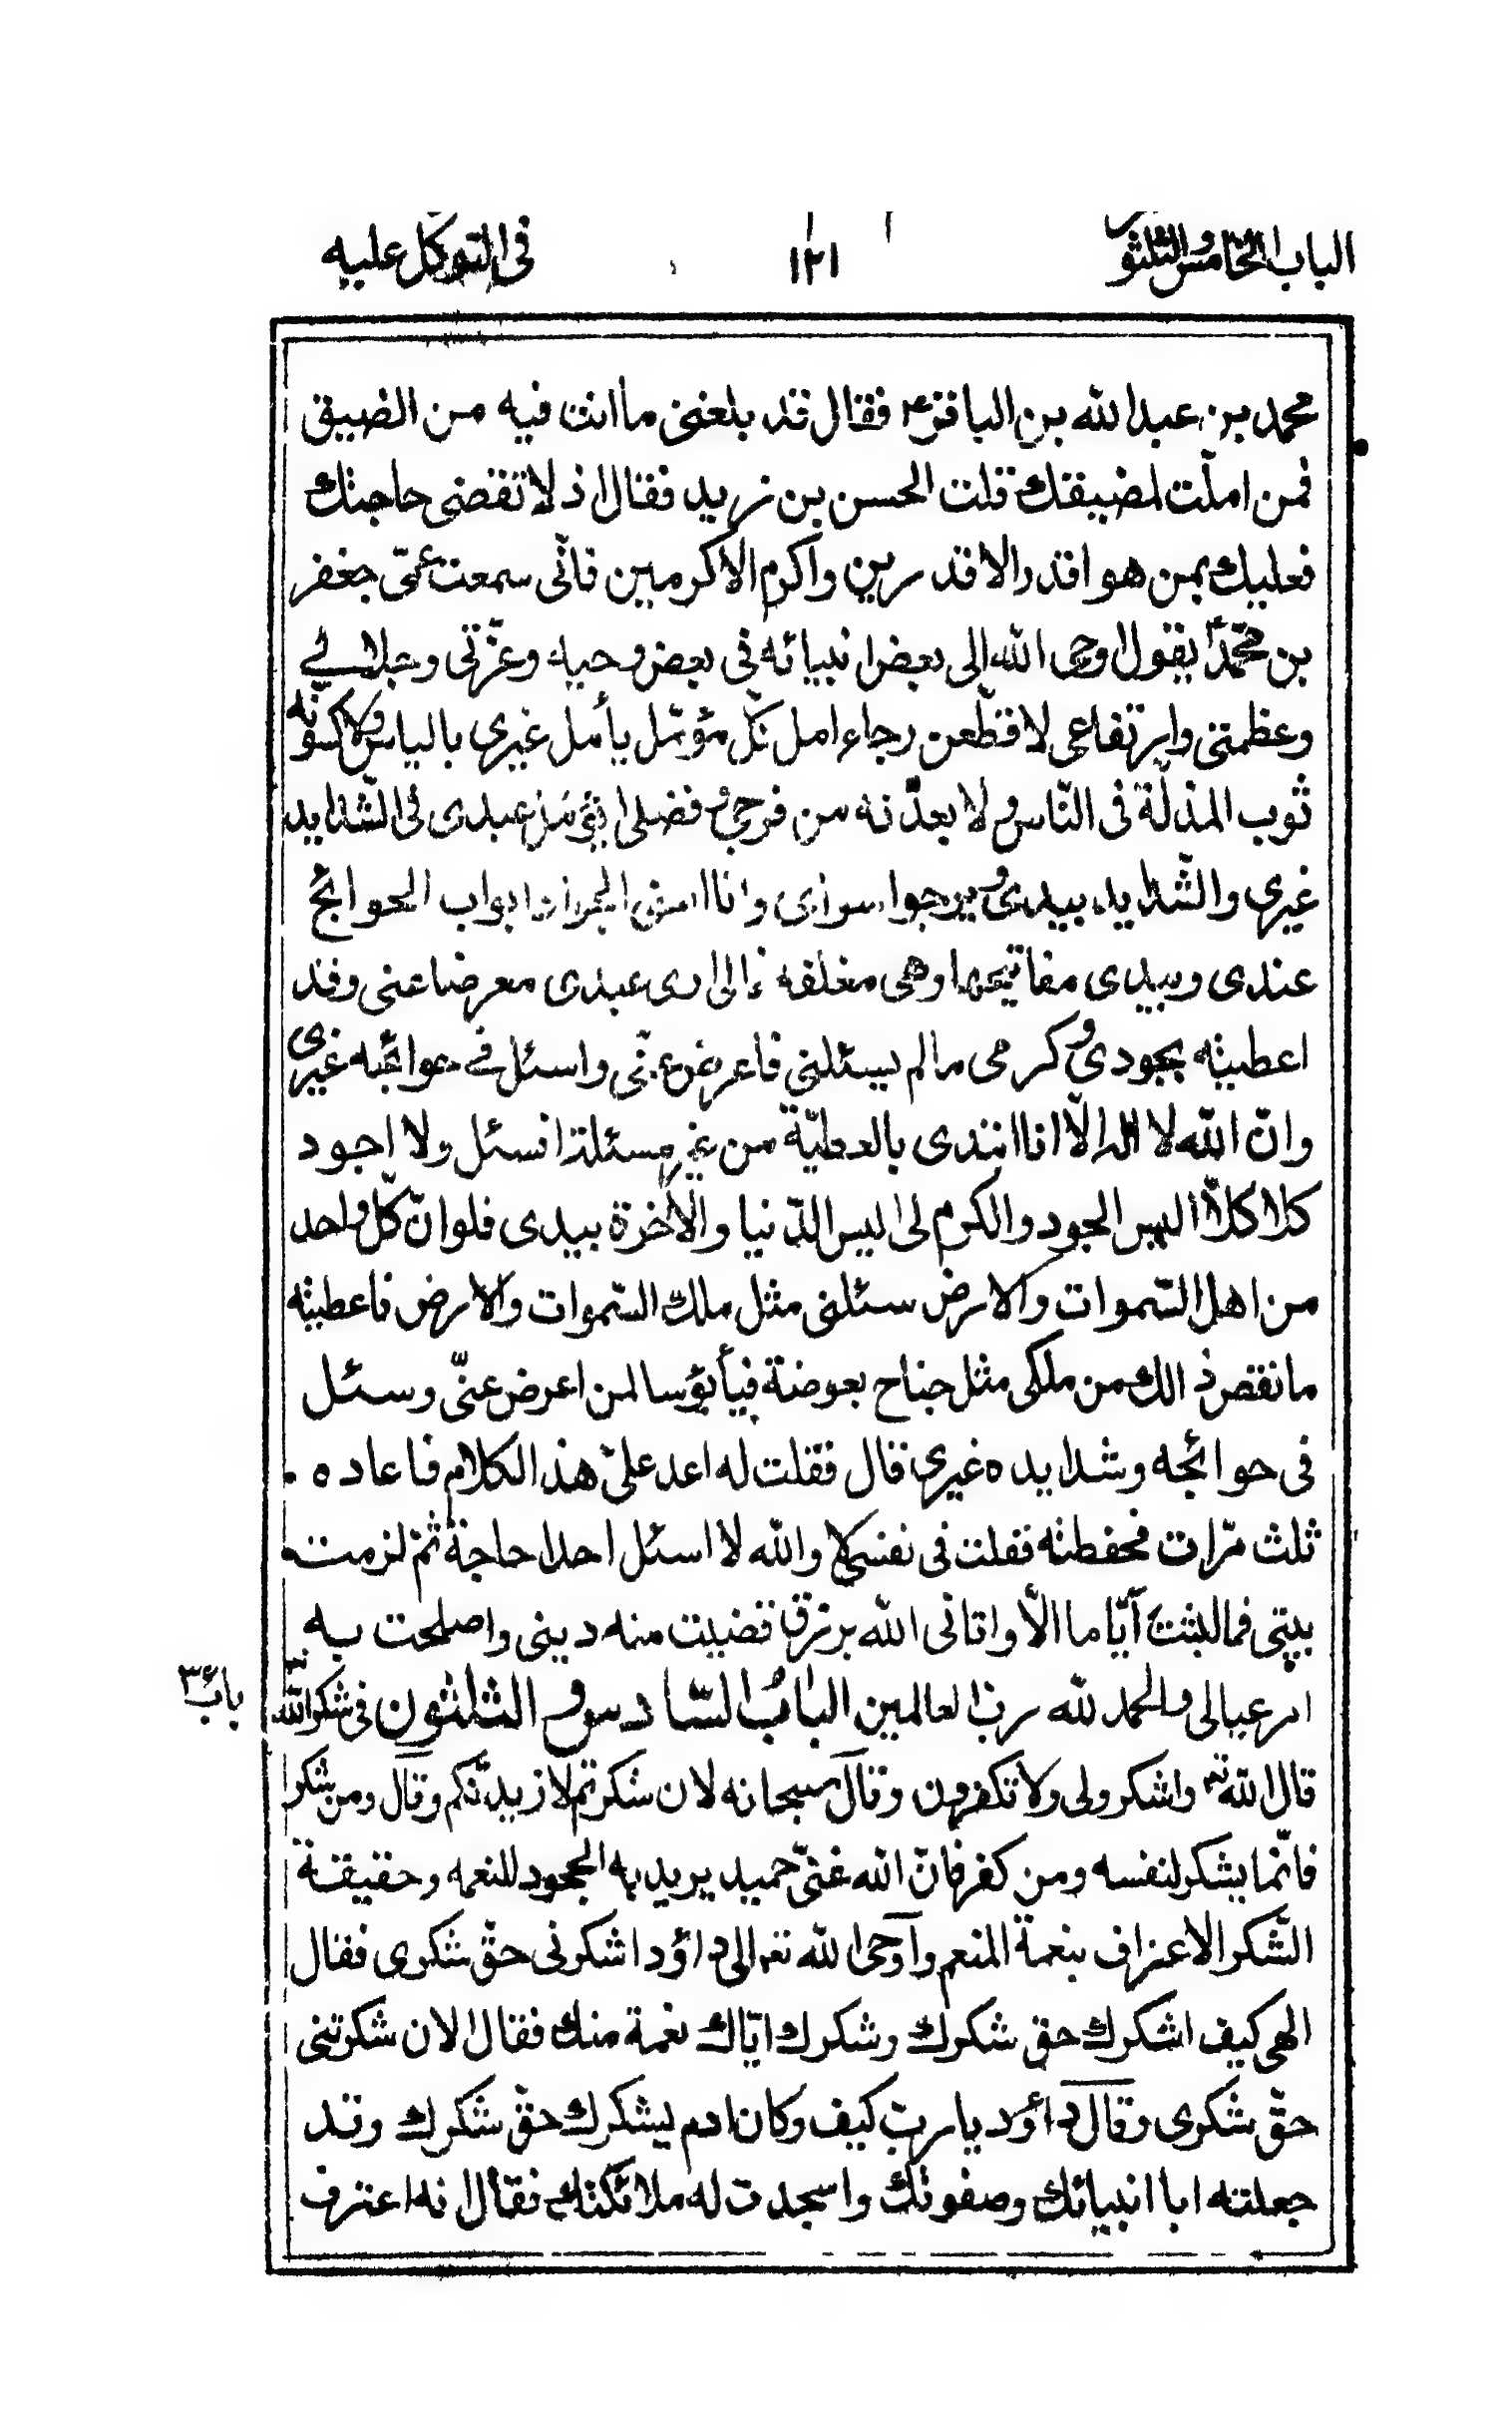 الباب الخامس والثلثون ١٢١ فى التوكل عليه
محمد بن عبدالله بن الباقرؑ فقال قد بلغنى ما انت فيه من الضيق
فمن املّت لمضيقتك قلت الحسن بن زيد فقال اذ لا تقضى حاجتك
فعليك بمن هو اقدر الاقدرين واكرم الاكرمين فانّى سمعت عمّى جعفر
بن محمّدؑ يقول اوحى الله الى بعض انبيائه فى بعض وحيه وعزّتى وجلالى
وعظمتى وارتفاعى لاقطّعن رجاء امل كلّ مؤمّل يأمل غيرى بالياس ولاكسونّه
ثوب المذلّة فى النّاس ولابعدّنه من فرجى و فضلى عبدى فى الشّدايد
غيرى والشّدايد بيدى ويرجوا سوائى وانا ابواب الحوائج
عندى وبيدى مفاتيحها وهى مغلقه مالى ارى عبدى معرضا عنى وقد
اعطيته بجودى وكرمى مالم يسئلنى فاعرض عنّى واسئل فى حوائجه غيرى
وانّ الله لا اله الّا انا ابتدى بالعطيّة من غير مسئلة افسئل ولا اجود
كلا كلّا اليس الجود والكرم لى اليس الدّنيا والاخرة بيدى فلو انّ كلّ واحد
من اهل السّموات والارض سئلنى مثل ملك السّموات والارض فاعطيته
ما نقص ذالك من ملكى مثل جناح بعوضة فيأبؤسا لمن اعرض عنّى وسئل
فى حوائجه وشدايده غيرى قال فقلت له اعد علىّ هذ الكلام فاعاده
ثلث مرّات فحفظته فقلت فى نفسى لا والله لا اسئل احدا حاجة ثمّ لزمت
بيتى فما لبثت ايّاما الّا واتانى الله برزق قضيت منه دينى واصلحت به
امر عيالى والحمد لله ربّ العالمين البابُ السّادس والثلثون فى شكر الله
باب ٣٦
قال الله تع واشكرولى ولا تكفرون وقال سبحانه لان شكرتم لازيدنّكم وقال ومن شكر
فانّما يشكر لنفسه ومن كفر فانّ الله غنىّ حميد يريد به الجحود للنعمه وحقيقة
الشّكر الاعتراف بنعمة المنعم واوحى الله تعم الى داؤد اشكرنى حقّ شكرى فقال
الهى كيف اشكرك حق شكرك وشكرك ايّاك نعمة منك فقال الان شكرتنى
حقّ شكرى وقال داؤد يا ربّ كيف وكان ادم يشكرك حقّ شكرك وقد
جعلته ابا انبيائك وصفوتك واسجدت له ملائكتك فقال انه اعترف